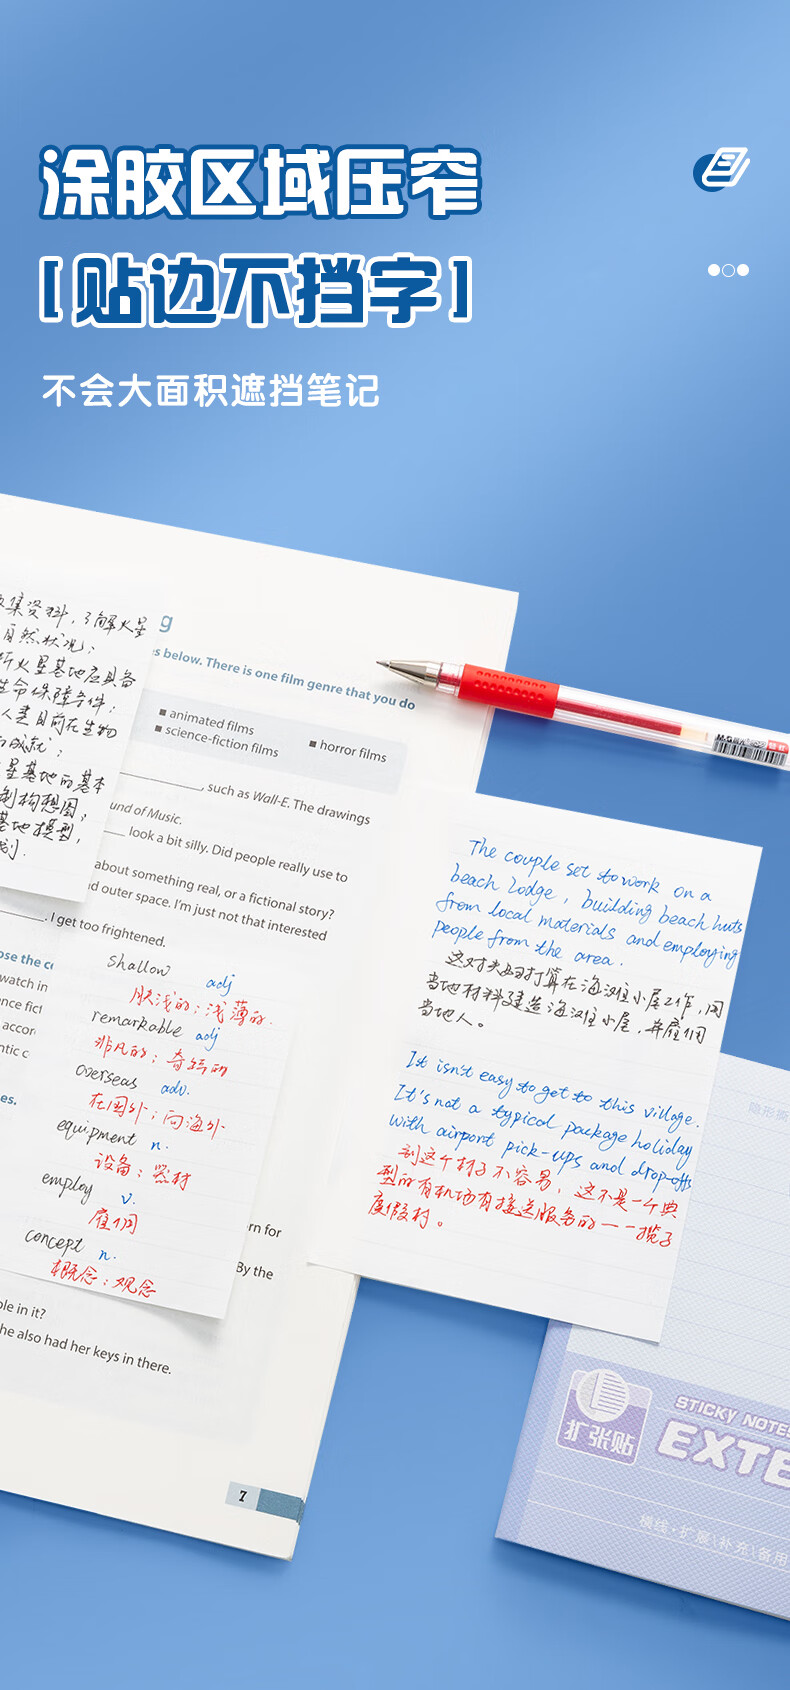 涂胶区域压窄
[贴边不挡字]
不会大面积遮挡笔记
集资料，了解火星
自然状况；
析火星基地应具备
生命保障条件；
人类目前在生物
的成就；
星基地的基本
制构想图；
基地模型，
划.
g
s below. There is one film genre that you do
▪ animated films
▪ science-fiction films
▪ horror films
, such as Wall-E. The drawings
und of Music.
look a bit silly. Did people really use to
about something real, or a fictional story?
d outer space. I'm just not that interested
. I get too frightened.
ose the c
watch in
nce fict
accor
ntic c
es.
shallow adj
肤浅的；浅薄的.
remarkable adj
非凡的；奇特的
overseas adv.
在国外；向海外
equipment n.
设备；器材
employ v.
雇佣
concept n.
概念；观念
rn for
By the
ole in it?
he also had her keys in there.
7
M&G
The couple set to work on a
beach lodge, building beach huts
from local materials and employing
people from the area.
这对夫妇打算在海滩小屋工作，用
当地材料建造海滩小屋，并雇佣
当地人。
It isn't easy to get to this village.
It's not a typical package holiday
with airport pick-ups and drop-offs
到这个村子不容易，这不是一个典
型的有机场有接送服务的一一揽子
度假村。
扩张贴
STICKY NOTES
EXTE
横线·扩展\补充\备用